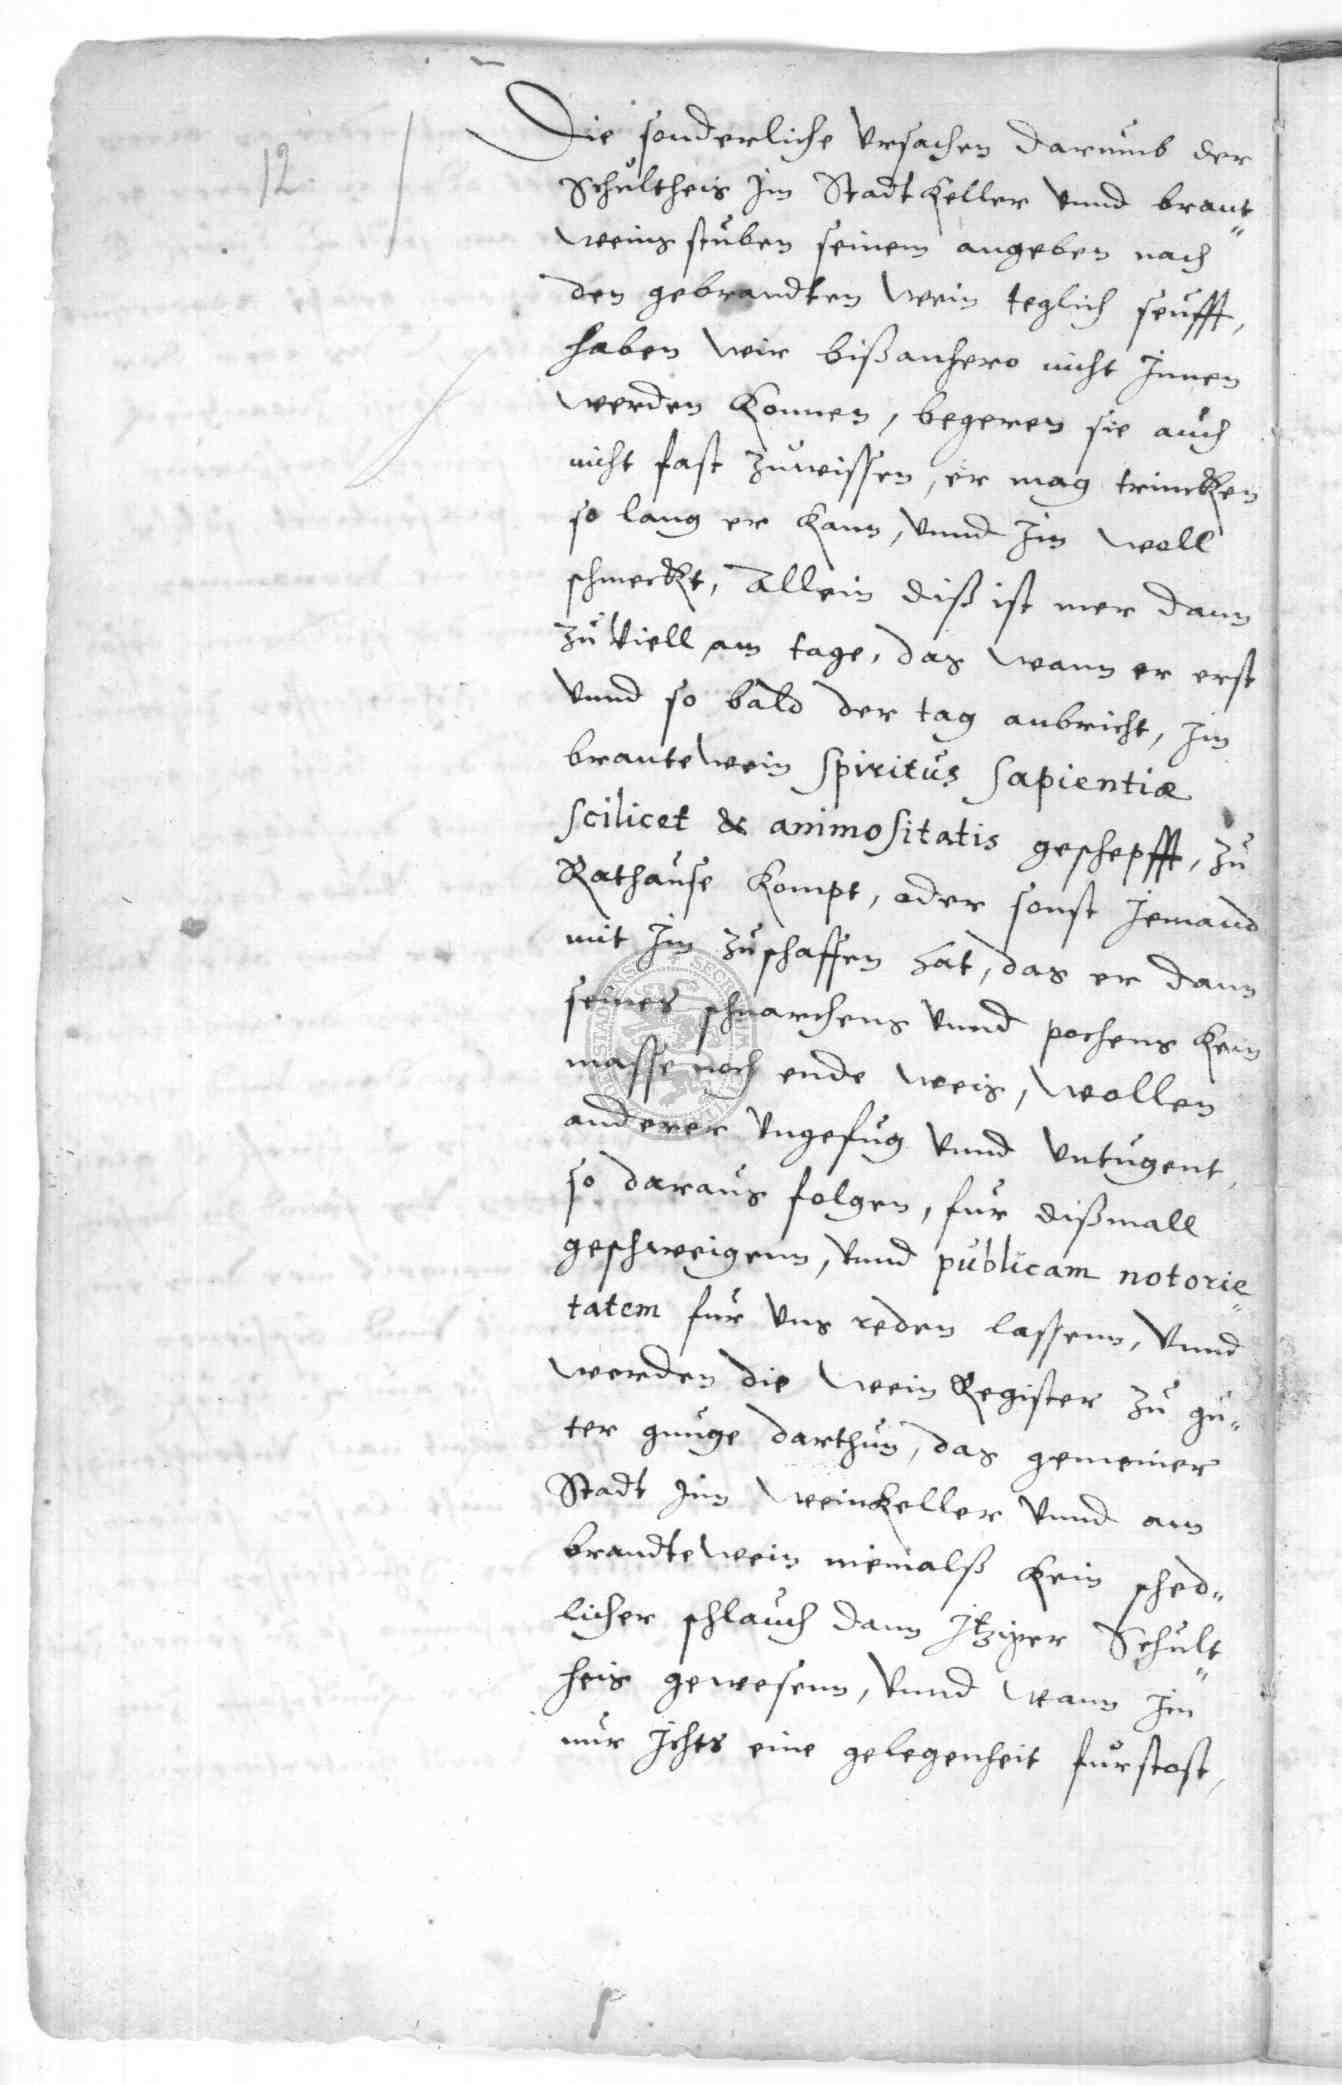 12
Die sonderliche Ursachen darumb der
Schultheis Im Stadtkeller Vnnd brant„
weins stuben seinem angeben nach
den gebrandten Wein teglich seufft,
haben wir bißanhero nicht Innen
werden konnen, begeren sie auch
nicht fast zuwissen, er mag trincken
so lang er kann, Vnnd Im woll
schmeckt, Allein diß ist mer dann
zu Viell am tage, das wann er erst
Vnnd so bald der tag anbricht, Im
brantewein Spiritus Sapientiæ
Scilicet & animositatis geschepfft, zu
Rathause kompt, oder sonst Jemand
mit Im zuschaffen hat, das er dann
seines schnarchens Vnnd pochens kein
masse noch ende weis, Wollen
anderer Vngefug Vnnd Vntugent,
so daraus folgen, fur dißmall
geschweigenn, Vnnd publicam notorie„
tatem fur Vns reden lassenn, Vnnd
werden die Wein Register zu gu„
ter gnuge darthun, das gemeiner
Stadt Im Weinkeller Vnnd am
brandtewein niemalß kein sched„
licher schlauch dann Itziger Schult„
heis gewesenn, Vnnd wann Im
nur Ichts eine gelegenheit furstost,